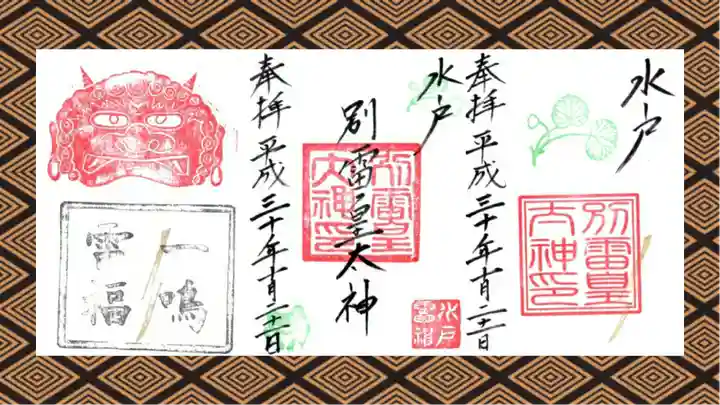 水戸
別雷皇
太神印
奉拝 平成三十年十一月二十二日
水戸
別雷皇太神
別雷皇
太神印
水戸
雷神
奉拝 平成三十年十一月二十二日
一鳴
雷福